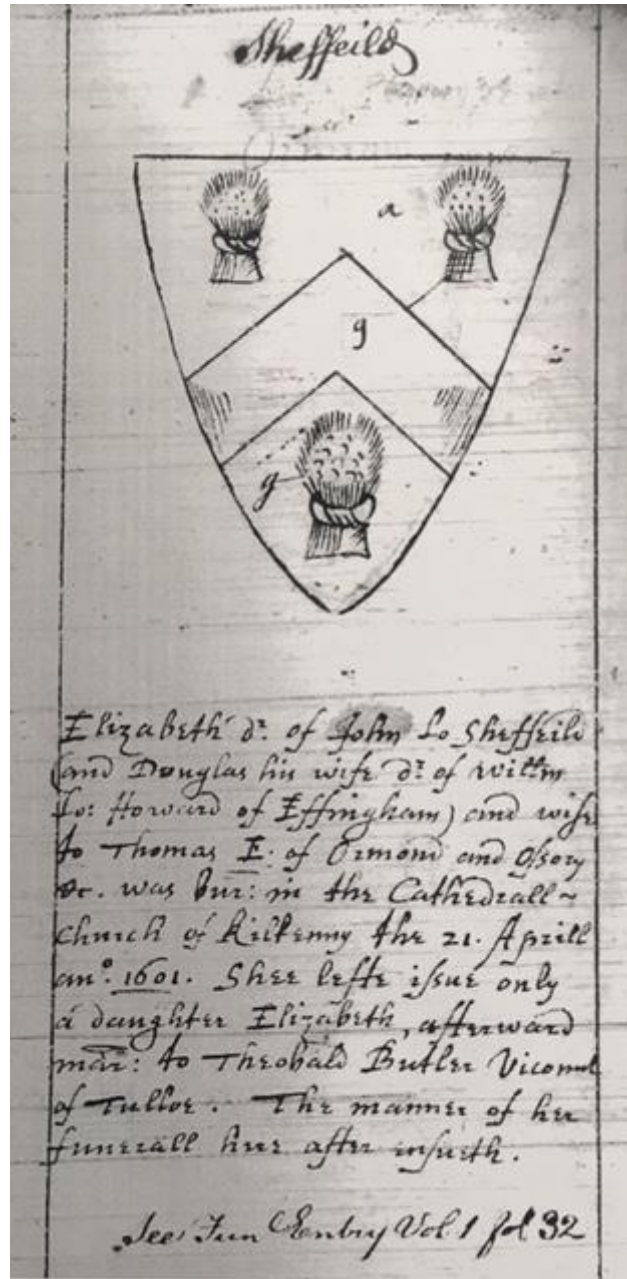 Sheffeild
a
g
g
Elizabeth dr. of John Lo Sheffeild
(and Douglas his wife dr. of Willm
Lo: Howard of Effingham) and wife
to Thomas E. of Ormond and Ossory
&c. was bur: in the Cathedrall
church of Kilkenny the 21. Aprill
ano. 1601. Shee lefte issue only
a daughter Elizabeth, afterward
mar: to Theobald Butler Vicount
of Tulloe. The manner of her
funerall here after insueth.
See Fun Entry Vol. 1 fol 32